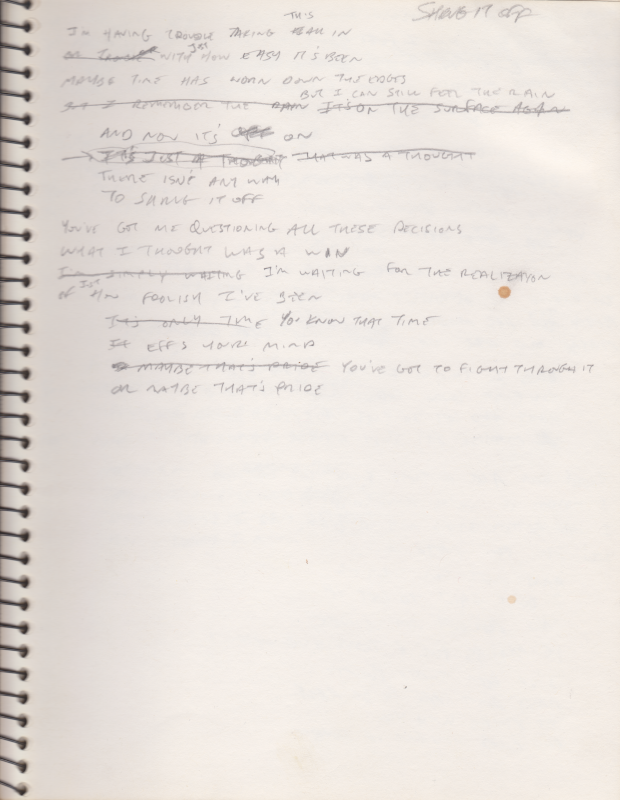 SHRUG IT OFF
THIS
I'M HAVING TROUBLE TAKING ALL IN
OR WITH JUST HOW EASY IT'S BEEN
MAYBE TIME HAS WORN DOWN THE EDGES
BUT I CAN STILL FEEL THE RAIN
BUT I REMEMBER THE RAIN IT'S ON THE SURFACE AGAIN
AND NOW IT'S OFF ON
IT'S JUST A THOUGHT THAT WAS A THOUGHT
THERE ISN'T ANY WAY
TO SHRUG IT OFF
YOU'VE GOT ME QUESTIONING ALL THESE DECISIONS
WHAT I THOUGHT WAS A WIN
I'M SIMPLY WAITING I'M WAITING FOR THE REALIZATION
OF JUST HOW FOOLISH I'VE BEEN
IT'S ONLY TIME YOU KNOW THAT TIME
IT EFFS YOUR MIND
MAYBE THAT'S PRIDE YOU'VE GOT TO FIGHT THROUGH IT
OR MAYBE THAT'S PRIDE